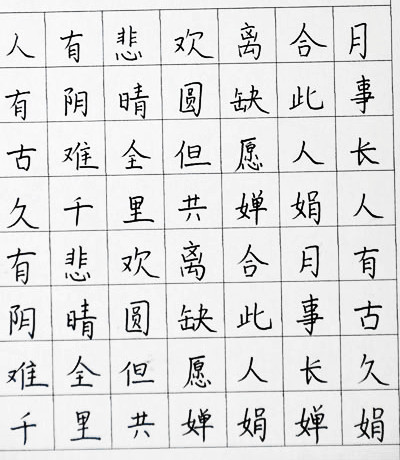 人有悲欢离合月
有阴晴圆缺此事
古难全但愿人长
久千里共婵娟人
有悲欢离合月有
阴晴圆缺此事古
难全但愿人长久
千里共婵娟婵娟